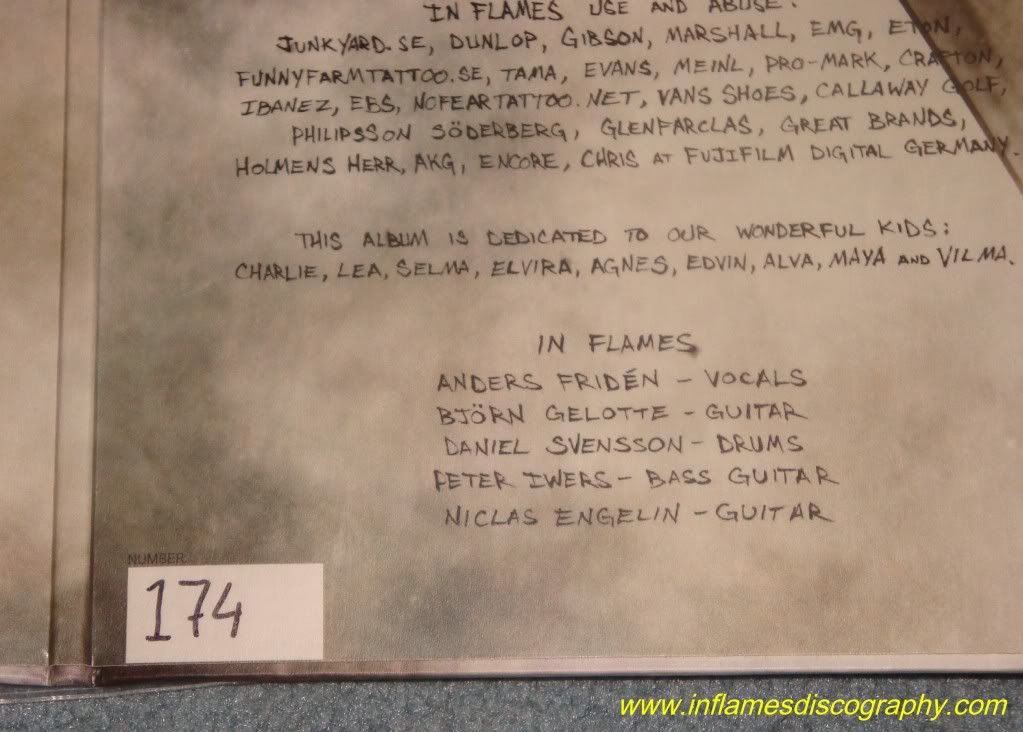 IN FLAMES USE AND ABUSE:
JUNKYARD.SE, DUNLOP, GIBSON, MARSHALL, EMG, ETON,
FUNNYFARMTATTOO.SE, TAMA, EVANS, MEINL, PRO-MARK, CRAFTON,
IBANEZ, EBS, NOFEARTATTOO.NET, VANS SHOES, CALLAWAY GOLF,
PHILIPSSON SÖDERBERG, GLENFARCLAS, GREAT BRANDS,
HOLMENS HERR, AKG, ENCORE, CHRIS AT FUJIFILM DIGITAL GERMANY.
THIS ALBUM IS DEDICATED TO OUR WONDERFUL KIDS:
CHARLIE, LEA, SELMA, ELVIRA, AGNES, EDVIN, ALVA, MAYA AND VILMA.
IN FLAMES
ANDERS FRIDÉN – VOCALS
BJÖRN GELOTTE – GUITAR
DANIEL SVENSSON – DRUMS
PETER IWERS – BASS GUITAR
NICLAS ENGELIN – GUITAR
NUMBER
174
www.inflamesdiscography.com